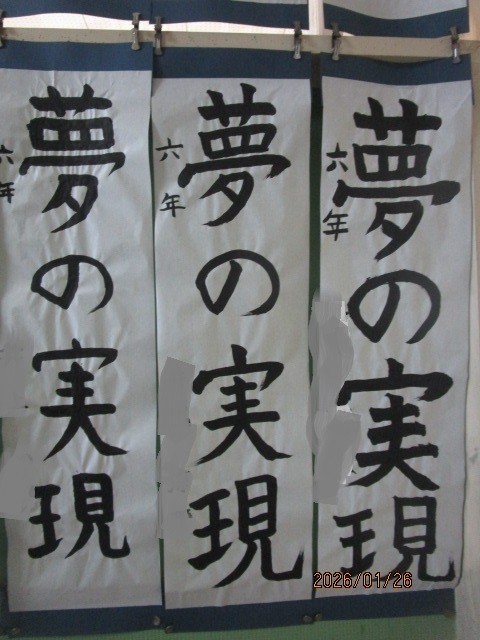 夢の実現
六年
夢の実現
六年
夢の実現
六年
2026/01/26